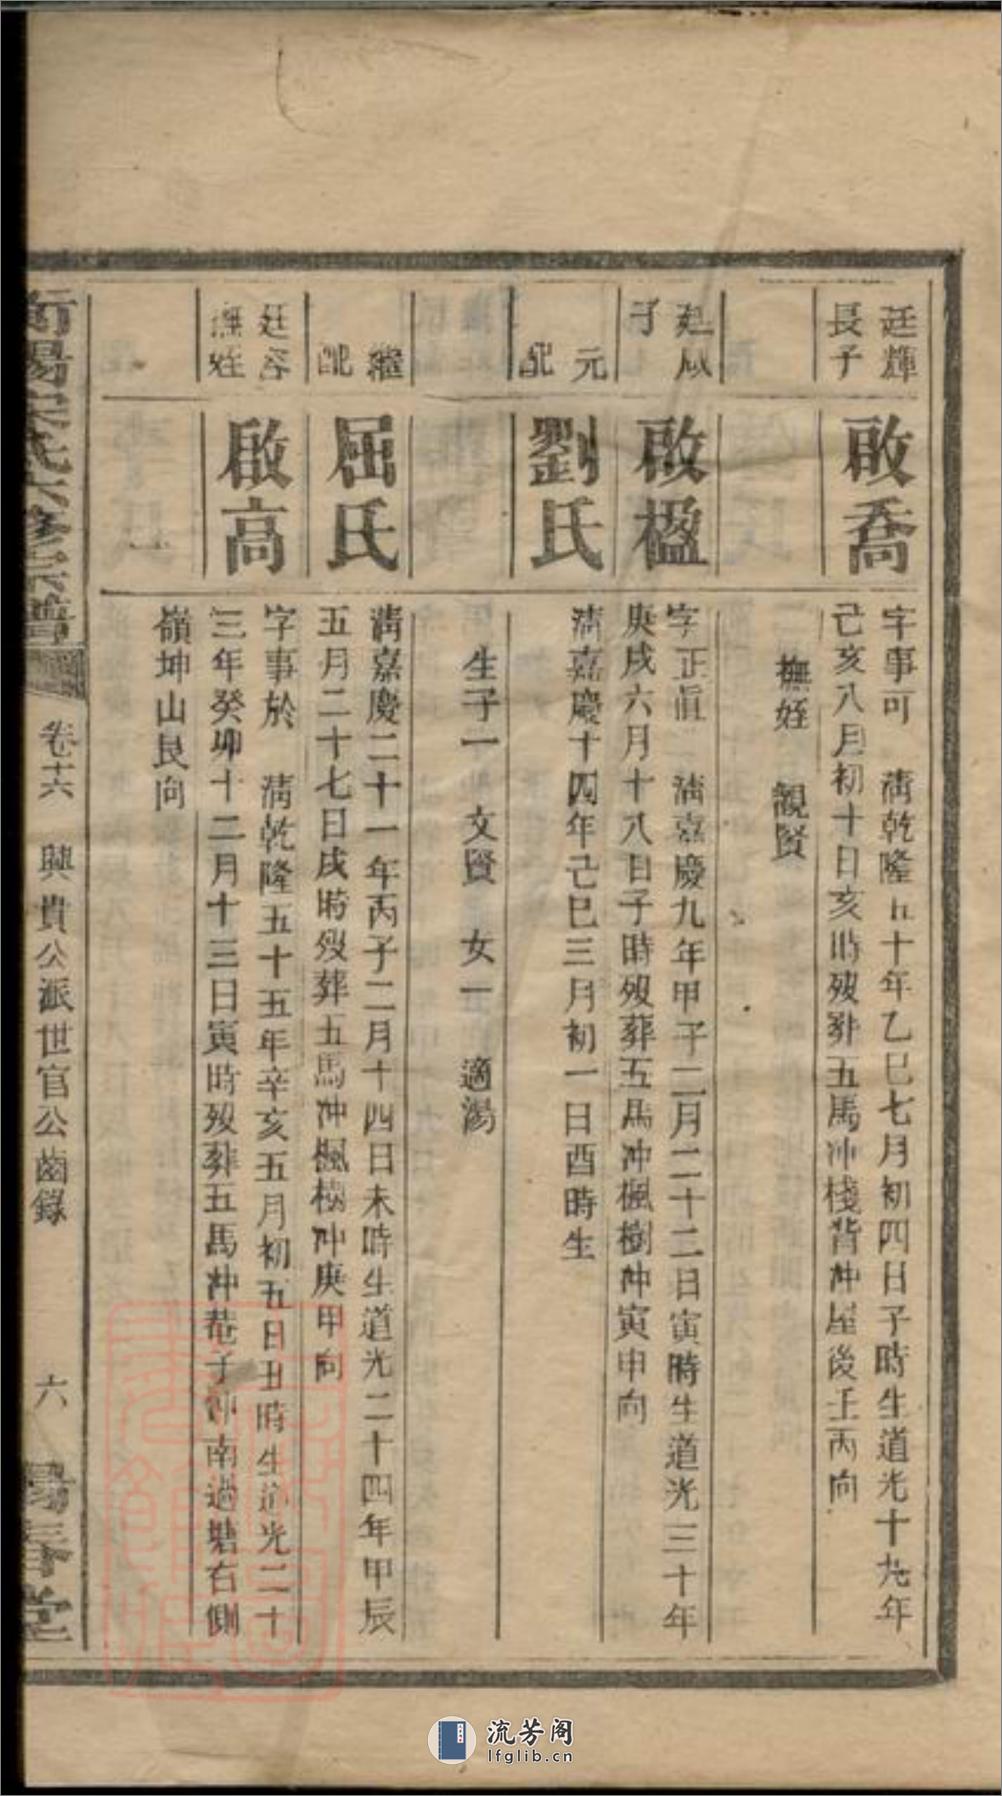 廷輝
長子
啟喬
字事可 清乾隆五十年乙巳七月初四日子時生道光十九年
己亥八月初十日亥時歿葬五馬冲棧背冲屋後壬丙向
撫姪 觀賢
子
啟楹
字正 清嘉慶九年甲子二月二十二日寅時生道光三十年
庚戌六月十八日子時歿葬五馬冲楓樹冲寅申向
元
配
劉氏
清嘉慶十四年己巳三月初一日酉時生
生子一 文賢 女一 適湯
繼
配
屈氏
清嘉慶二十一年丙子二月十四日未時生道光二十四年甲辰
五月二十七日戌時歿葬五馬冲楓樹冲庚甲向
廷容
撫姪
啟高
字事於 清乾隆五十五年辛亥五月初五日丑時生道光二十
三年癸卯十二月十三日寅時歿葬五馬冲菴子冲南過塘右側
嶺坤山艮向
衡陽宋氏六修宗譜
卷十六 興貴公派世官公齒錄
六
陽春堂
流芳阁
lfglib.cn